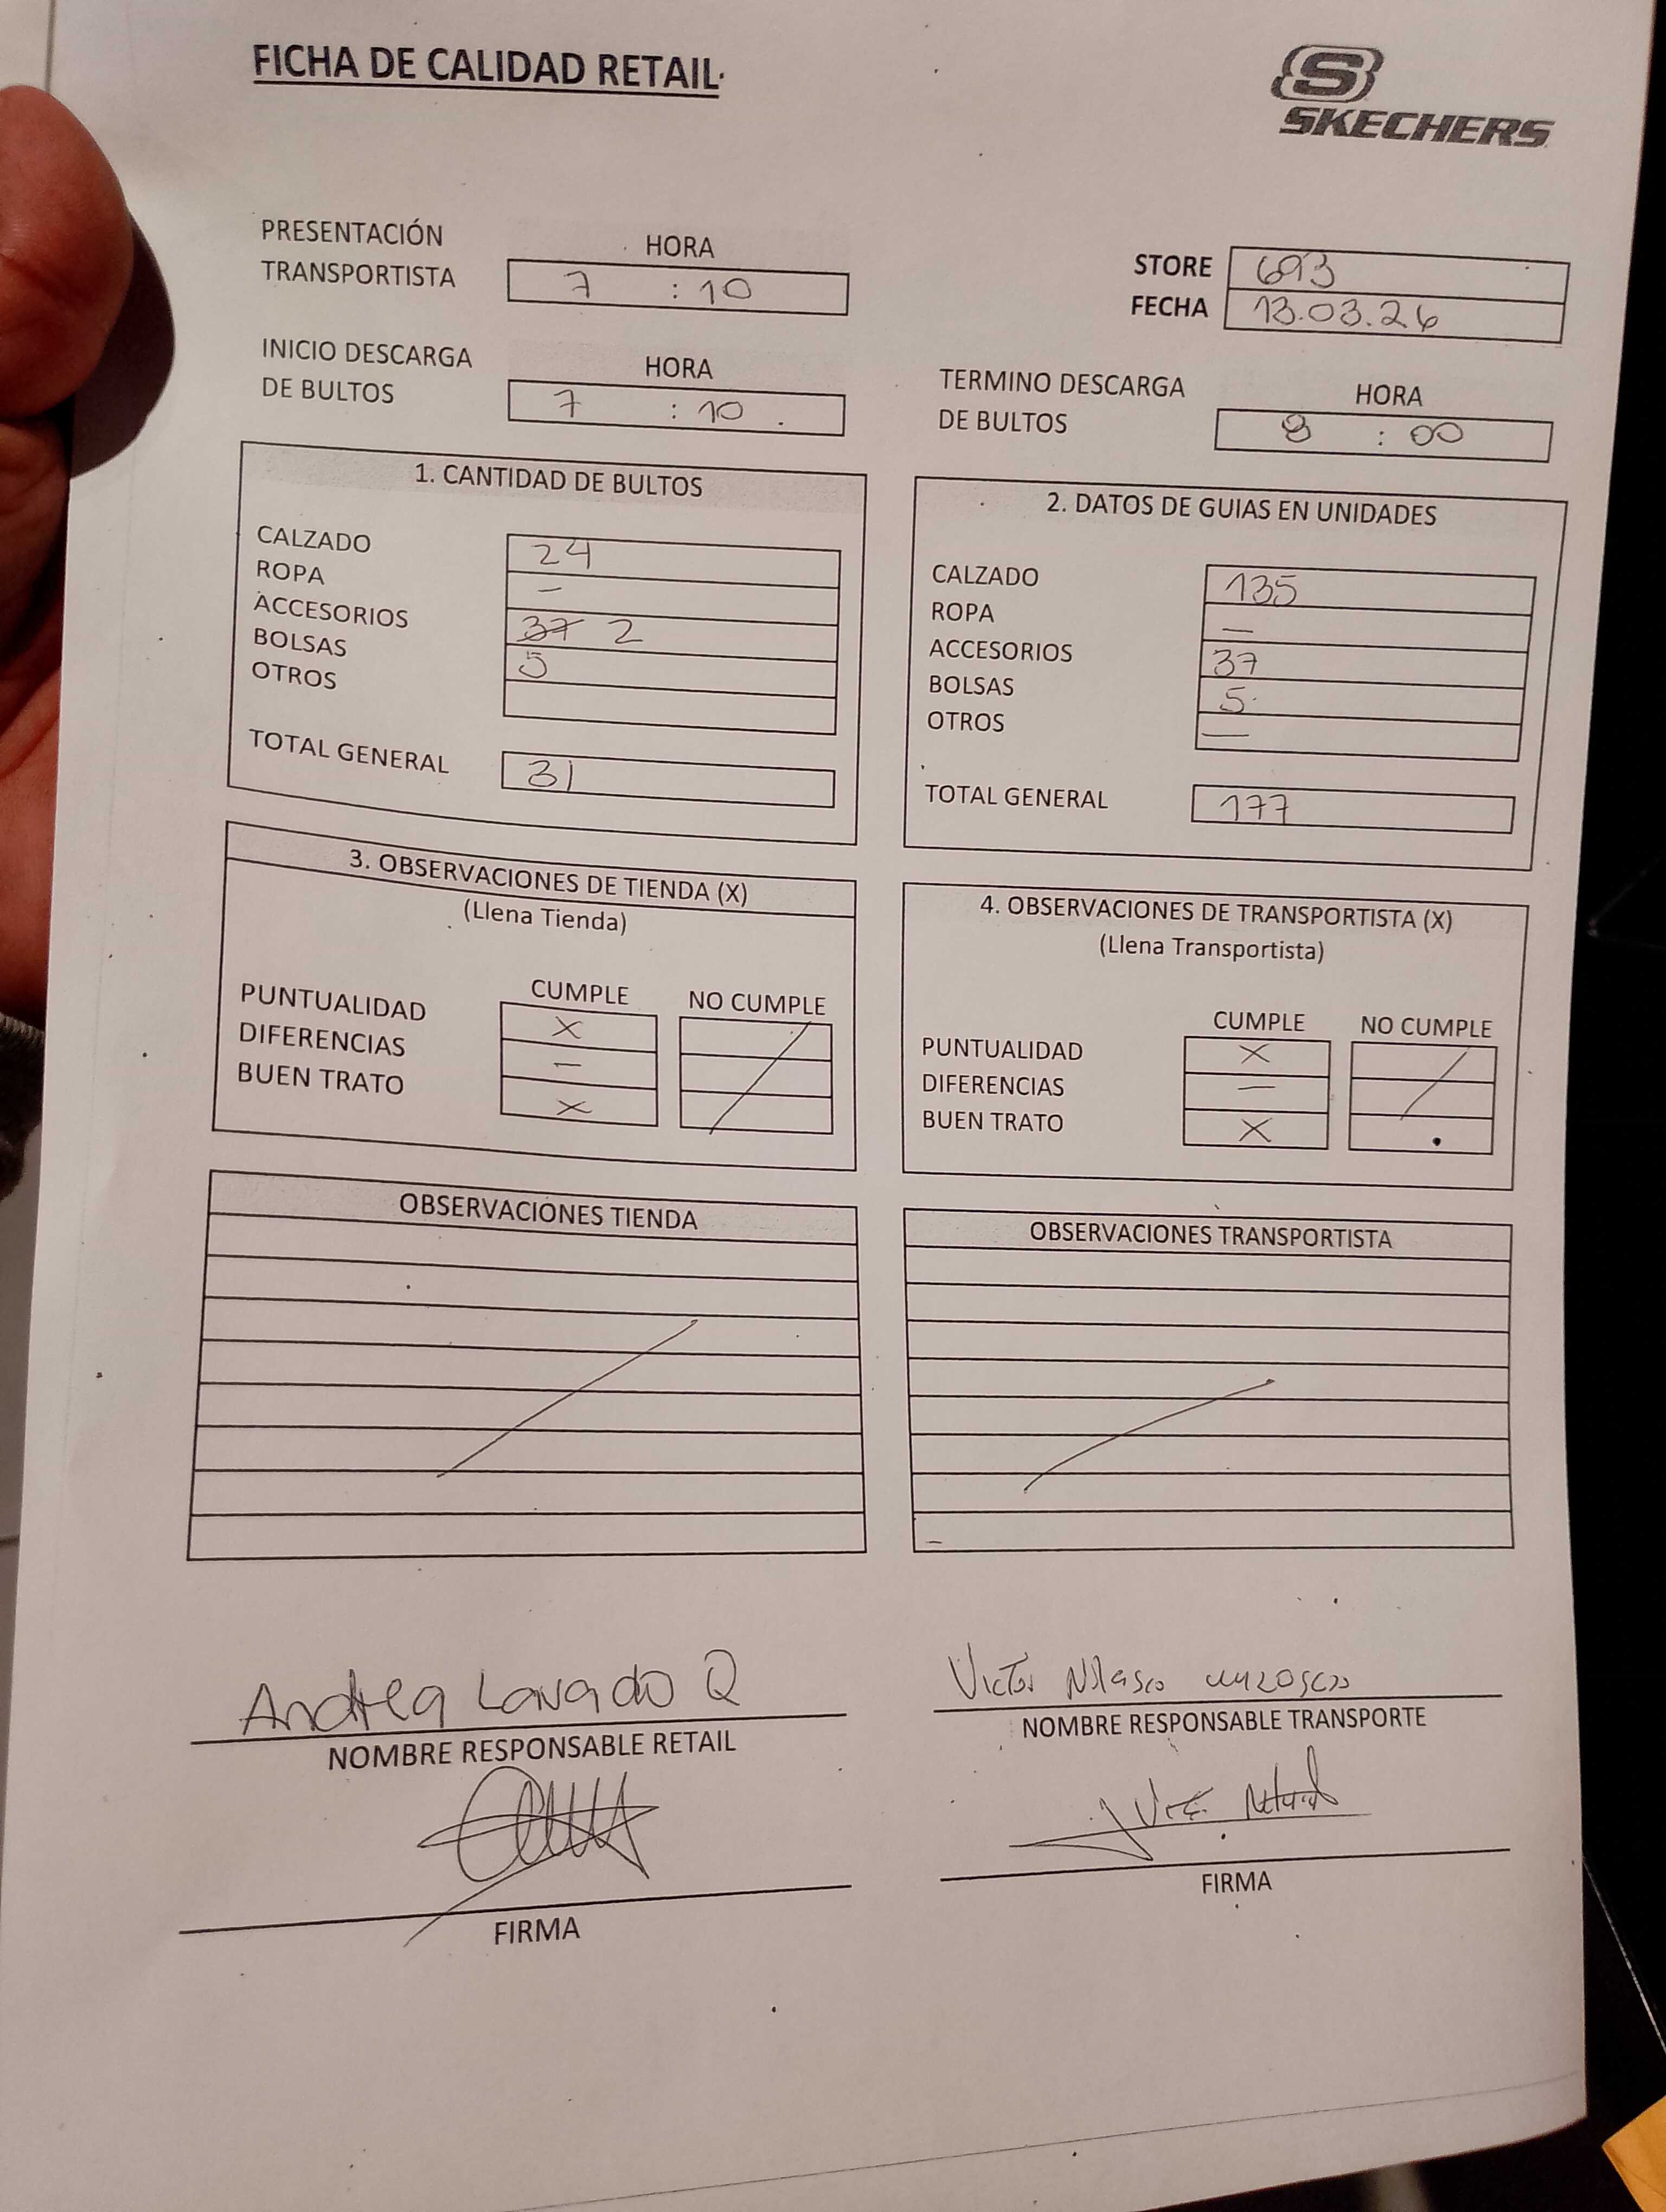 FICHA DE CALIDAD RETAIL
SKECHERS
PRESENTACIÓN TRANSPORTISTA
HORA
7 : 10
STORE 693
FECHA 13.03.26
INICIO DESCARGA DE BULTOS
HORA
7 : 10
TERMINO DESCARGA DE BULTOS
HORA
8 : 00
1. CANTIDAD DE BULTOS
CALZADO 24
ROPA —
ACCESORIOS 37 2
BOLSAS 5
OTROS
TOTAL GENERAL 31
2. DATOS DE GUIAS EN UNIDADES
CALZADO 135
ROPA —
ACCESORIOS 37
BOLSAS 5
OTROS —
TOTAL GENERAL 177
3. OBSERVACIONES DE TIENDA (X)
(Llena Tienda)
CUMPLE NO CUMPLE
PUNTUALIDAD X
DIFERENCIAS —
BUEN TRATO X
4. OBSERVACIONES DE TRANSPORTISTA (X)
(Llena Transportista)
CUMPLE NO CUMPLE
PUNTUALIDAD X
DIFERENCIAS —
BUEN TRATO X
OBSERVACIONES TIENDA
OBSERVACIONES TRANSPORTISTA
Andrea Lavado Q
NOMBRE RESPONSABLE RETAIL
FIRMA
Victor
NOMBRE RESPONSABLE TRANSPORTE
FIRMA